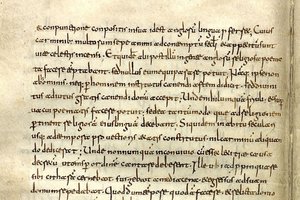 & conpunctione conpositis in sua id est anglorum lingua proferret Cuius
carminibus multorum saepe animi ad contemptum saeculi & appetitum sunt
uitae caelestis incensi. Et quidem & alii post illum in gente anglorum religiosa poemata
facere temtabant sed nullus eum aequiparare potuit. Namque ipse non
ab hominibus neque per hominem institutus canendi artem didicit sed diuini
tus adiutus gratis canendi donum accepit. Unde nihil umquam friuoli & super
uacui poematis facere potuit sed ea tantummodo quae ad religionem
pertinent religiosam eius linguam decebant. Siquidem in habitu saeculari
usque ad tempora prouectioris aetatis constitutus nil carminum aliquando
didicerat. Unde nonnumquam in conuiuio cum esset laetitiae causa
decretum ut omnes per ordinem cantare deberent. Ille ubi adpropinquare
sibi citharam cernebat surgebat a media caena & egressus ad suam
domum repedabat Quod dum tempore quodam faceret & relicta domu